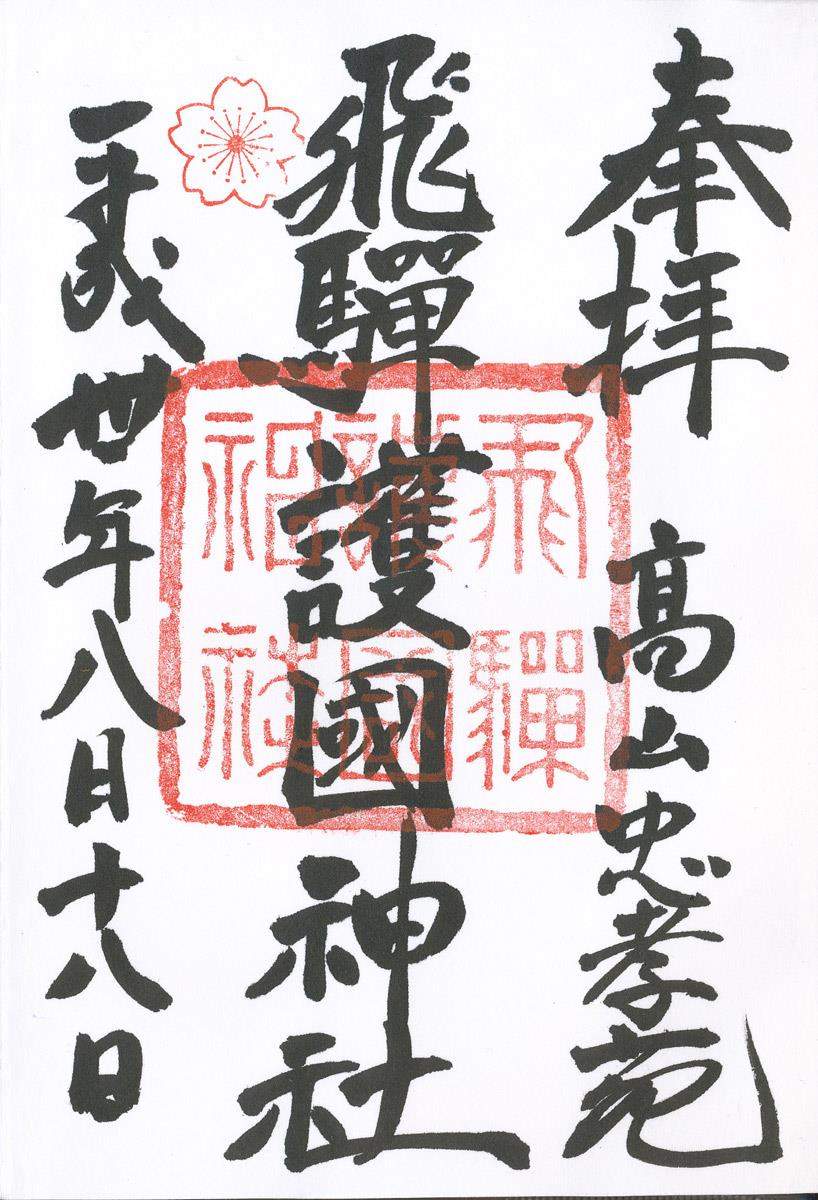 奉拝 高山忠孝苑
飛驒護國神社
平成丗年八月十八日
飛驒
護國
神社